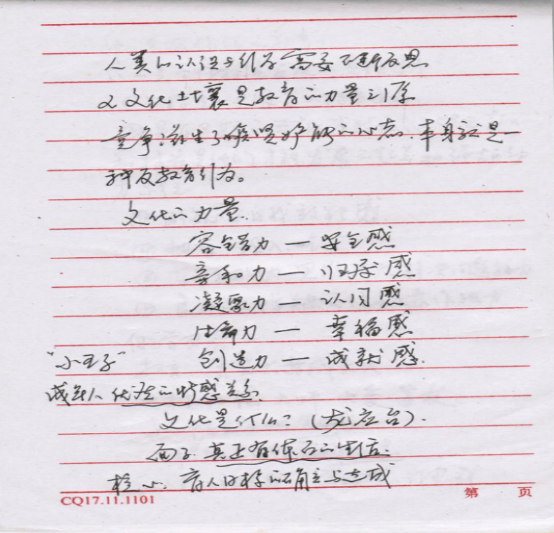 人类的认识与行为需要不断反思
文化土壤是教育的力量之源
竞争滋生了嫉贤妒能的心态,本身就是一
种反教育行为。
文化的力量
容纳力 — 安全感
亲和力 — 归属感
凝聚力 — 认同感
力 — 幸福感
"小王子" 创造力 — 成就感.
成年人 的情感关系
文化是什么?(龙应台).
面子 真正有体面的生活.
核心. 育人目标的确立与达成
CQ17.11.1101 第 页